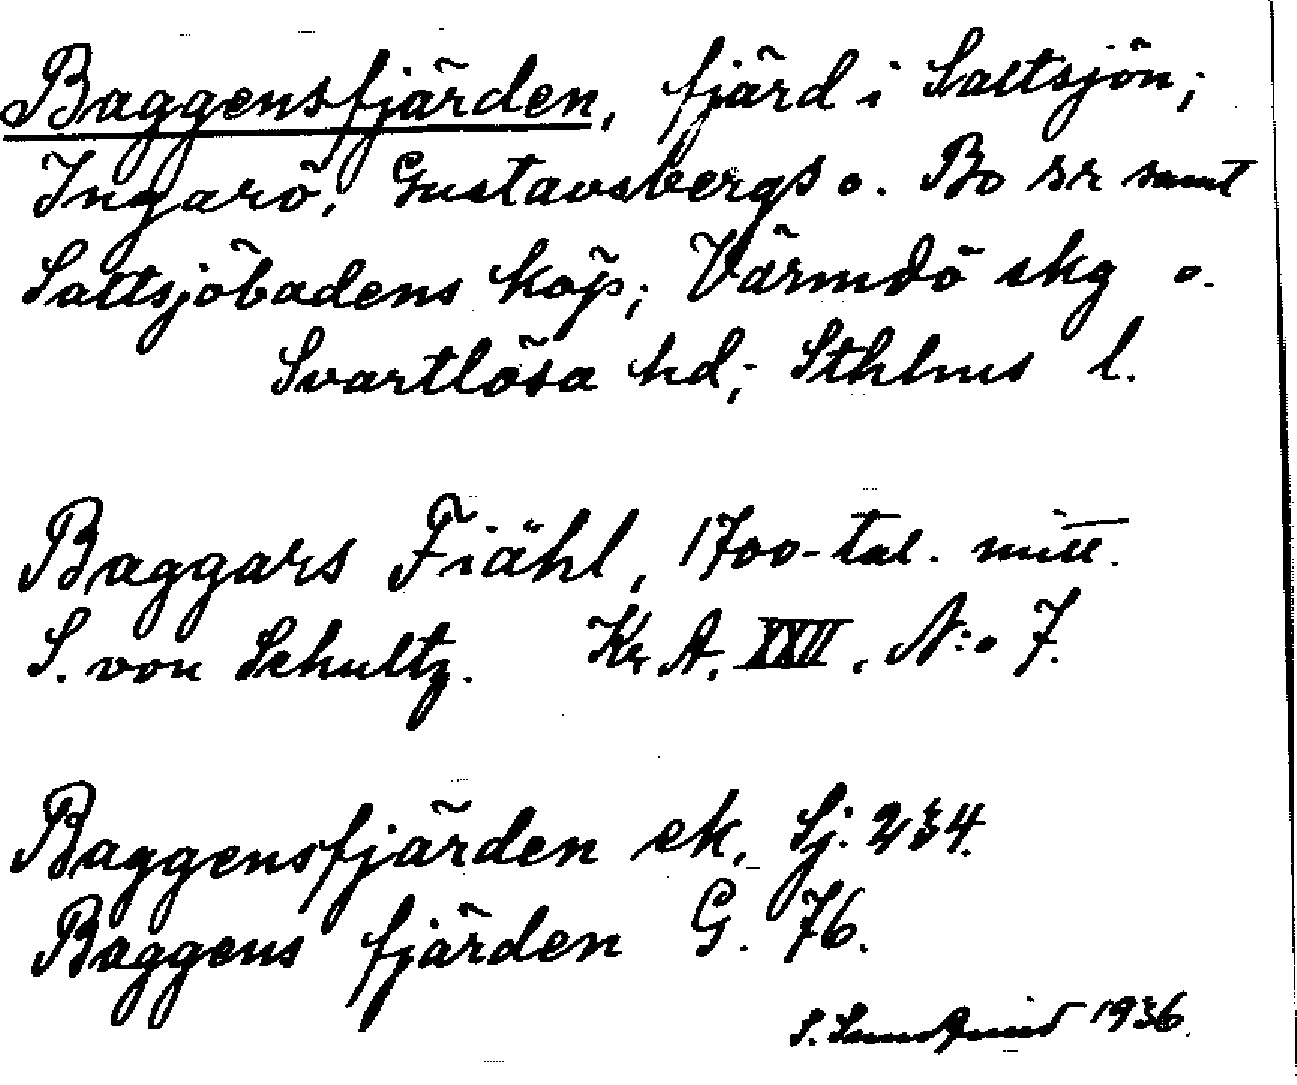 Baggensfjärden, fjärd i Saltsjön;
Ingarö, Gustavsbergs o. Bo srr samt
Saltsjöbadens köp; Värmdö skg o.
Svartlösa hd; Sthlms l.
Baggars Fiähl, 1700-tal. mitt.
S. von Schultz. Kr A. XXII. N:o 7.
Baggensfjärden ek. Sj. 234.
Baggens fjärden G. 76.
S. 1936